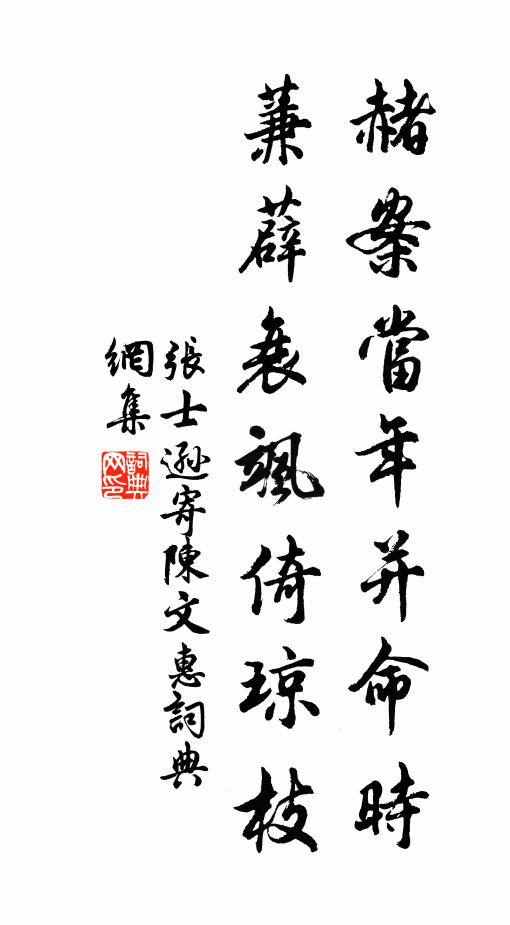 赭案當年并命時
蒹葭衰颯倚琼枝
張士遜寄陳文惠詞典
網集
詞典網印